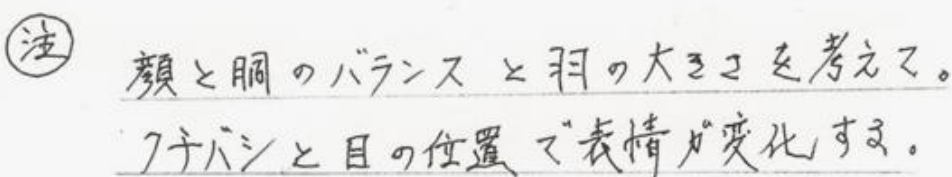 注 顔と胴のバランスと羽の大きさを考えて。
クチバシと目の位置で表情が変化する。